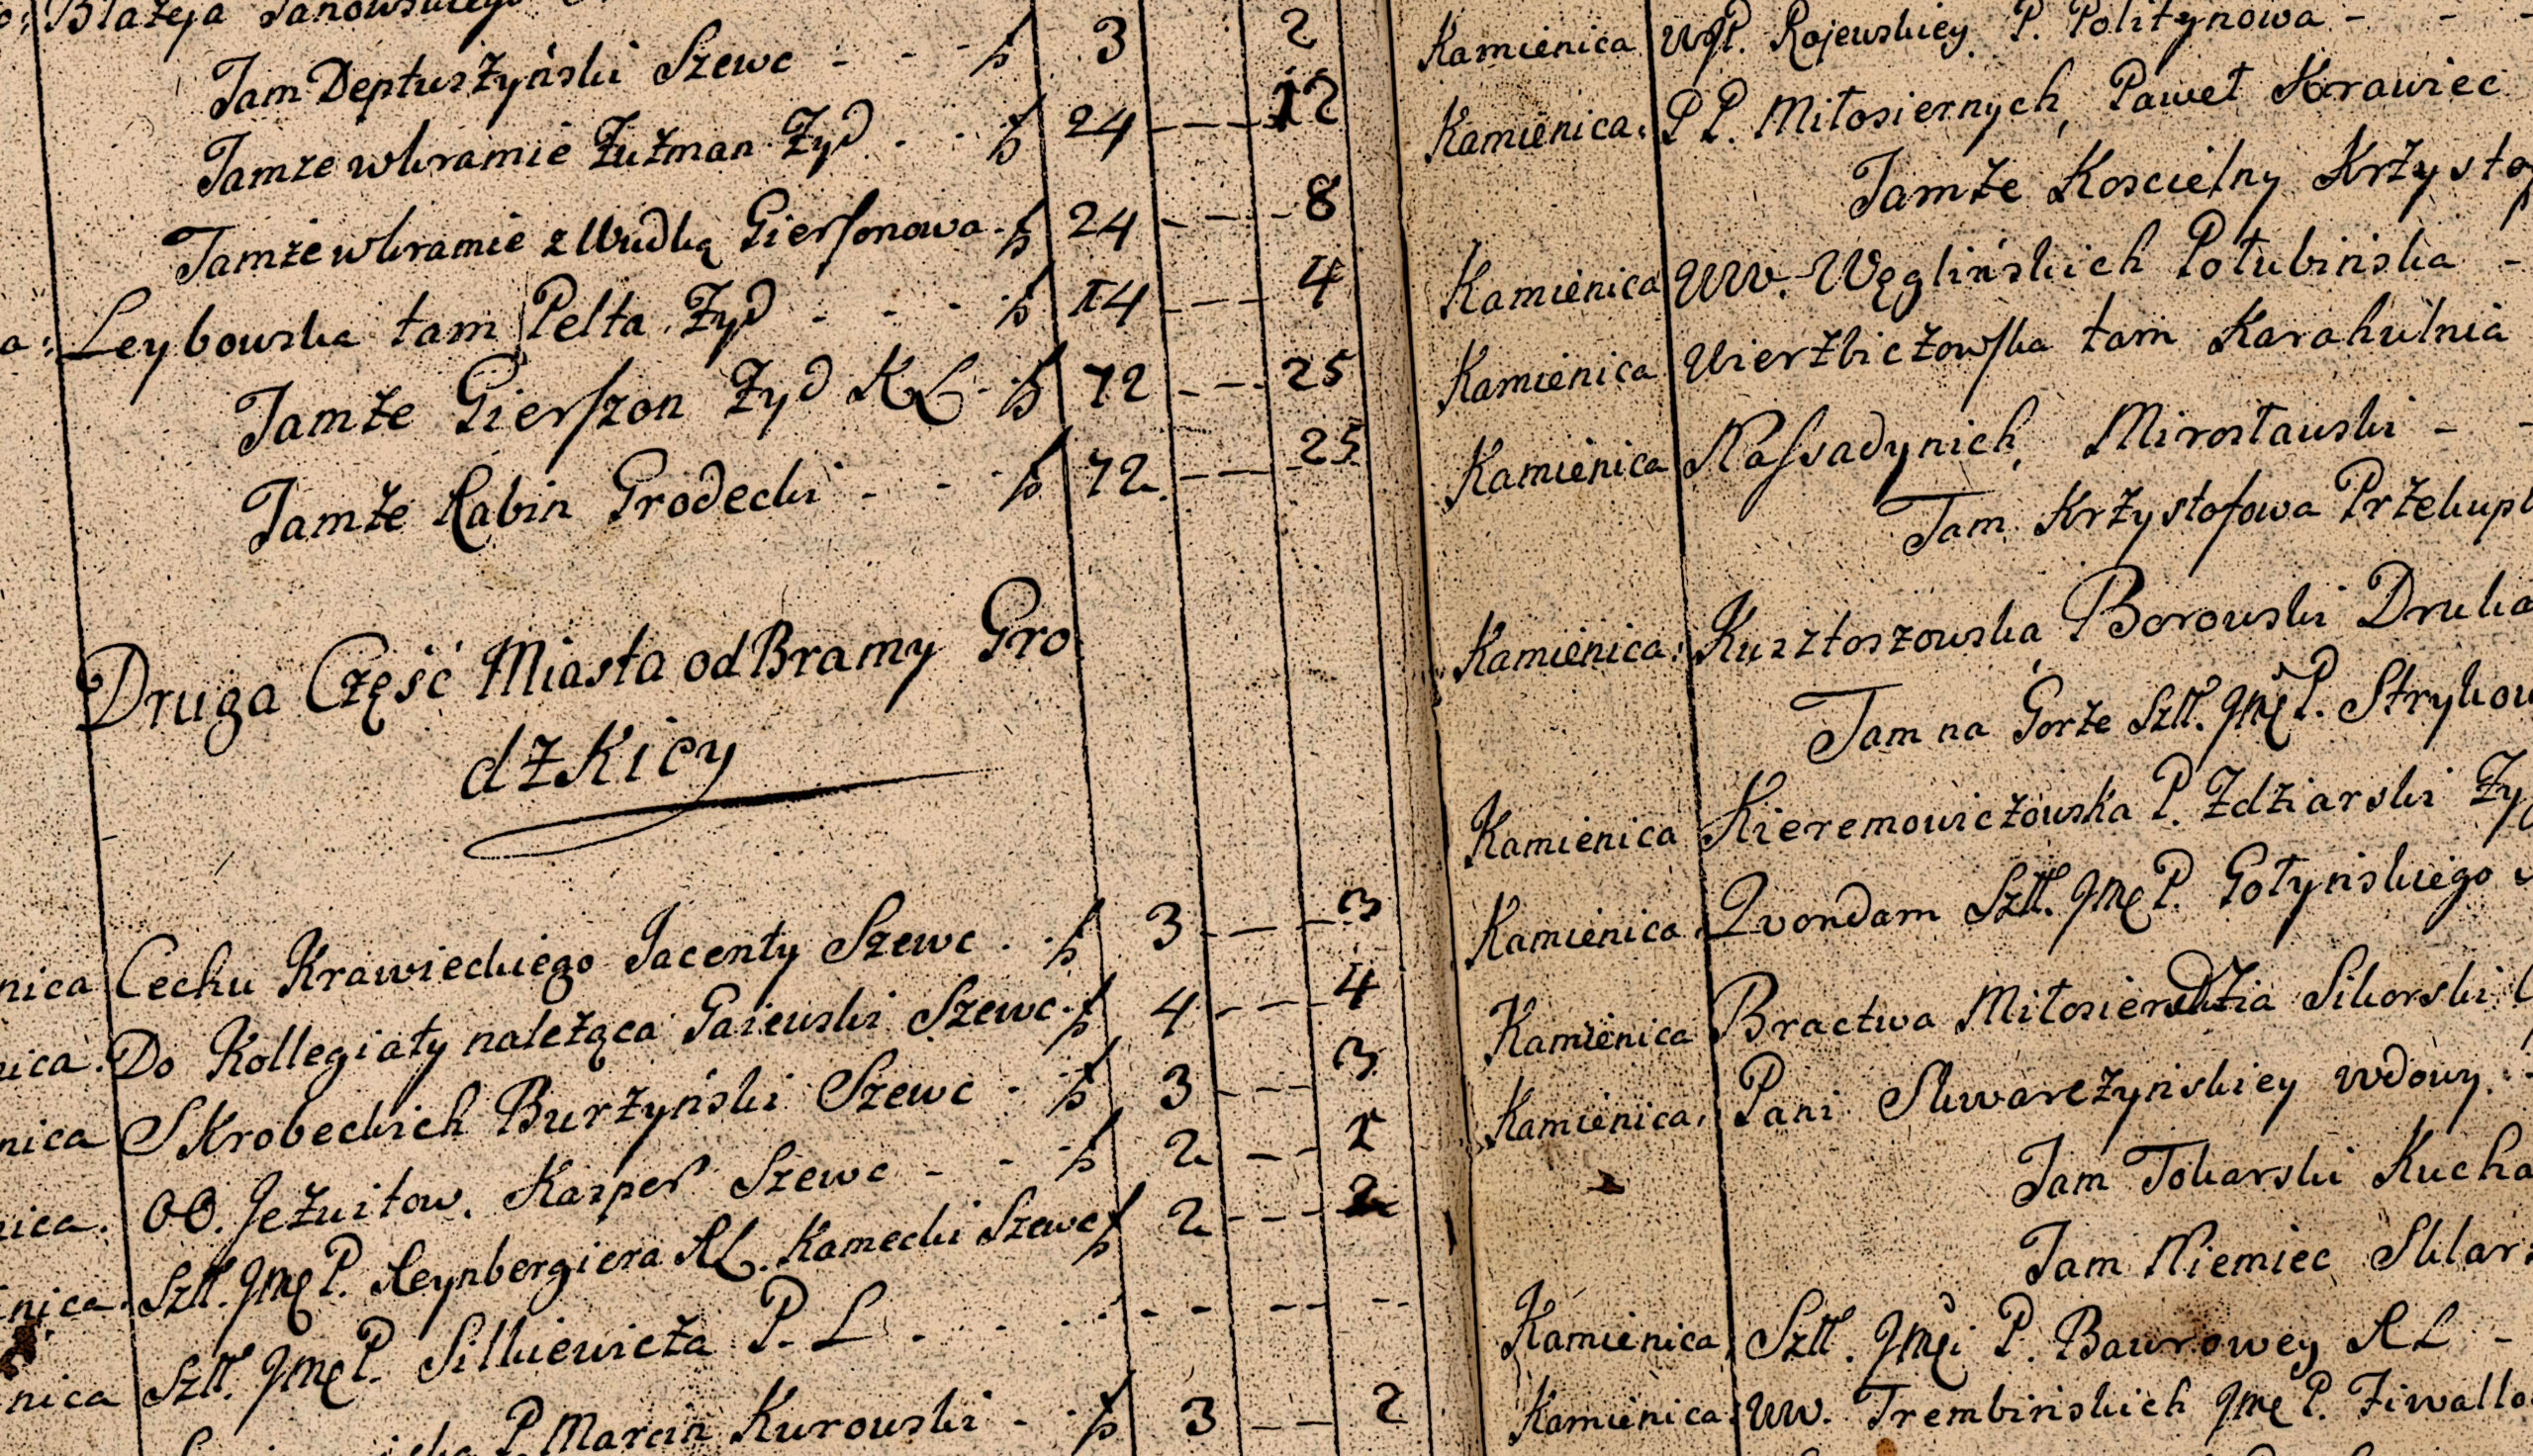 Błażeja Janowskiego
Tam Deptuszyński Szewc - - - fl 3 2
Tamże w bramie Zuzman Żyd . . fl 24 - - - 12
Tamże w bramie z Wudką Gierszonowa - fl 24 - - - 8
Leybowska tam Pelta Żyd - - - fl 14 - - - 4
Tamże Gierszon Żyd KL - fl 72 - - - 25
Tamże Rabin Grodecki - - - fl 72. - - - 25
Druga Część Miasta od Bramy Gro
dzkiey
nica Cechu Krawieckiego Jacenty Szewc . . fl 3 - - - 3
nica. Do Kollegiaty należąca Gaiewski Szewc . fl 4 - - - 4
nica Skrobeckich Burzyński Szewc - fl 3 - - - 3
nica. OO. Jezuitow. Kasper Szewc - - fl 2 - - 1
nica. Szll. Jmę P. Reynbergiera RL. Kamecki Szewc fl 2 - - - 2
nica Szll. Jmę P. Silkiewicza P. L . . . . - - - - - -
P. Marcin Kurowski - - fl 3 - - 2
Kamienica WJP. Rojewskiey P. Politynowa - - -
Kamienica. P P. Miłosiernych, Paweł Krawiec
Tamże Koscielny Krzysto
Kamienica WW. Węglińskich Połubińska -
Kamienica Wierzbiczowska tam Karakulnia
Kamienica Nassadynich, Mirosławski - -
Tam Krzystofowa Przekupk
Kamienica. Kusztoszowska Borowski Druka
Tam na Gorze Szll. Jmę P. Strykow
Kamienica Kieremowiczowska P. Zdziarski Ży
Kamienica. Qvondam Szll. Jmę P. Gołyńskiego
Kamienica Bractwa Miłosierdzia Sikorski
Kamienica. Pani Skwarczyńskiey wdowy.
Tam Tokarski Kucha
Tam Niemiec Sklar
Kamienica Szll. Jmęi P. Bawrowey RL -
Kamienica. WW. Trembińskich Jmę P. Fiwallo